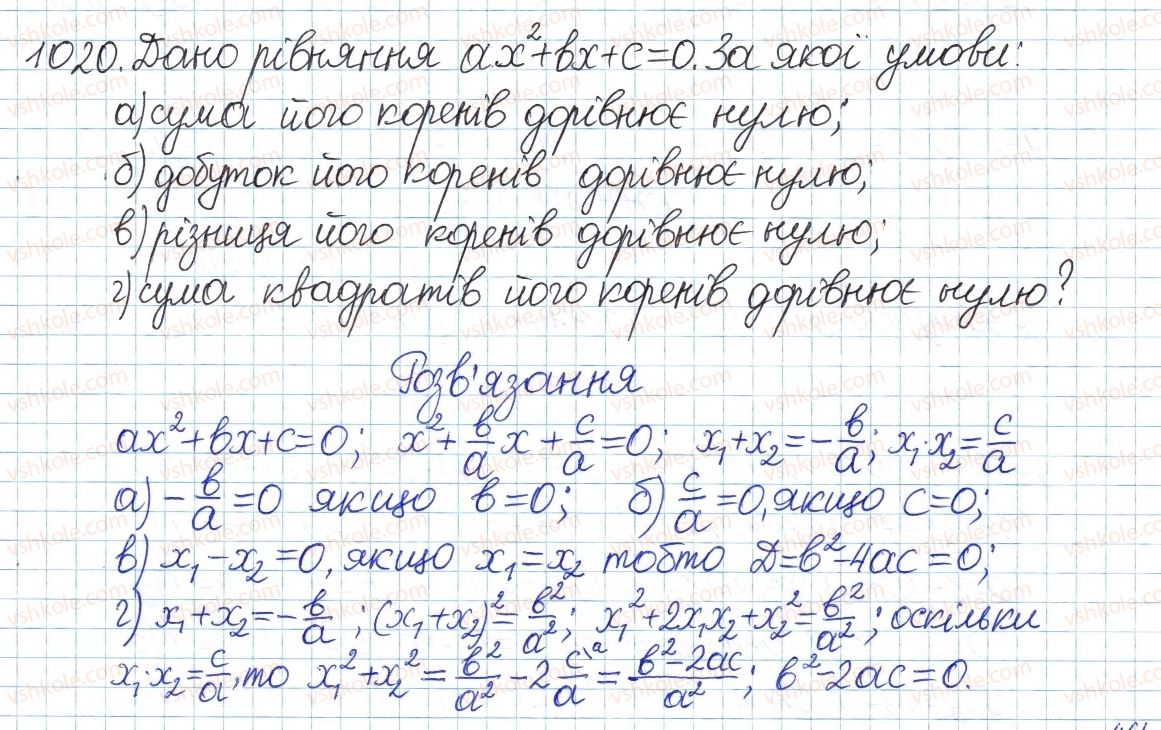 1020. Дано рівняння ax²+bx+c=0. За якої умови:
а) сума його коренів дорівнює нулю;
б) добуток його коренів дорівнює нулю;
в) різниця його коренів дорівнює нулю;
г) сума квадратів його коренів дорівнює нулю?
Розв'язання
ax²+bx+c=0; x²+b/a x+c/a=0; x₁+x₂=-b/a; x₁·x₂=c/a
а) -b/a=0 якщо b=0; б) c/a=0, якщо c=0;
в) x₁-x₂=0, якщо x₁=x₂ тобто D=b²-4ac=0;
г) x₁+x₂=-b/a; (x₁+x₂)²=b²/a²; x₁²+2x₁x₂+x₂²=b²/a²; оскільки
x₁·x₂=c/a, то x₁²+x₂²=b²/a²-2c\a/a=b²-2ac/a²; b²-2ac=0.